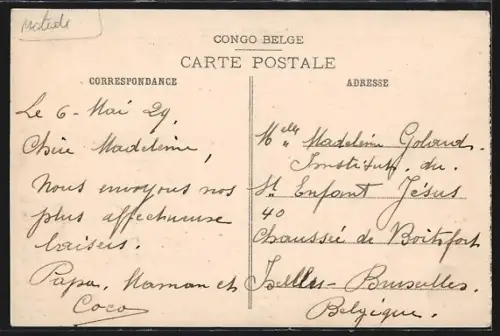 Matadi
CONGO BELGE
CARTE POSTALE
CORRESPONDANCE
Le 6 - Mai 29.
Chère Madeleine,
Nous envoyons nos
plus affectueuse
baisers.
Papa, Maman et
Coco
ADRESSE
Melle Madeleine Goland.
Institut. du.
St Enfant Jésus
40
Chaussée de Boitsfort
Ixelles - Bruxelles.
Belgique.